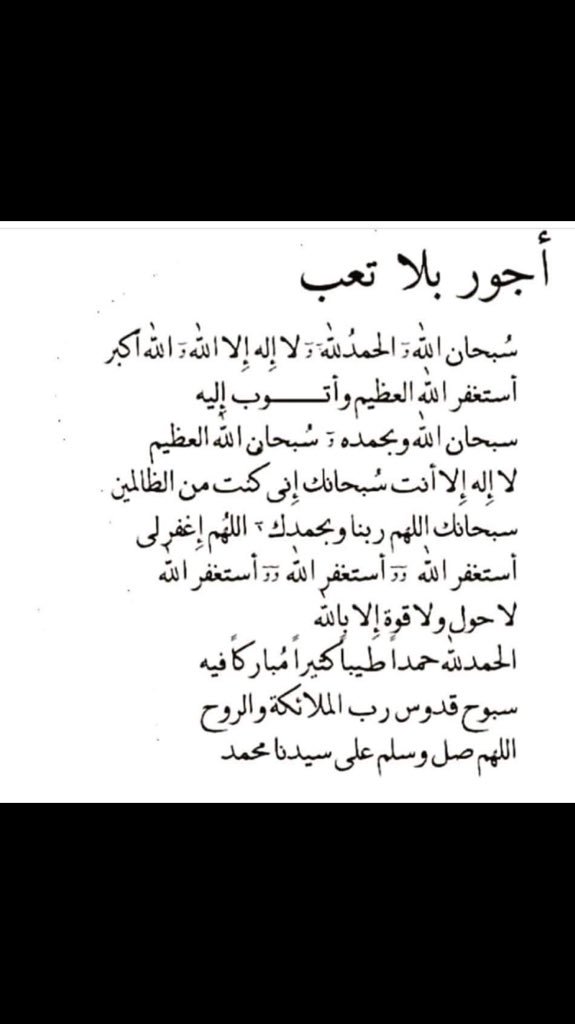 أجور بلا تعب
سُبحان الله، الحمدُلله، لا إله إلا الله، الله أكبر
أستغفر الله العظيم وأتـــوب إليه
سبحان الله وبحمده، سُبحان الله العظيم
لا إله إلا أنت سُبحانك إنى كنت من الظالمين
سبحانك اللهم ربنا وبحمدك، اللهُم إغفرلى
أستغفر الله،، أستغفر الله،، أستغفر الله
لا حول ولا قوة إلا بالله
الحمدلله حمداً طيباً كثيراً مُباركاً فيه
سبوح قدوس رب الملائكة والروح
اللهم صل وسلم على سيدنا محمد